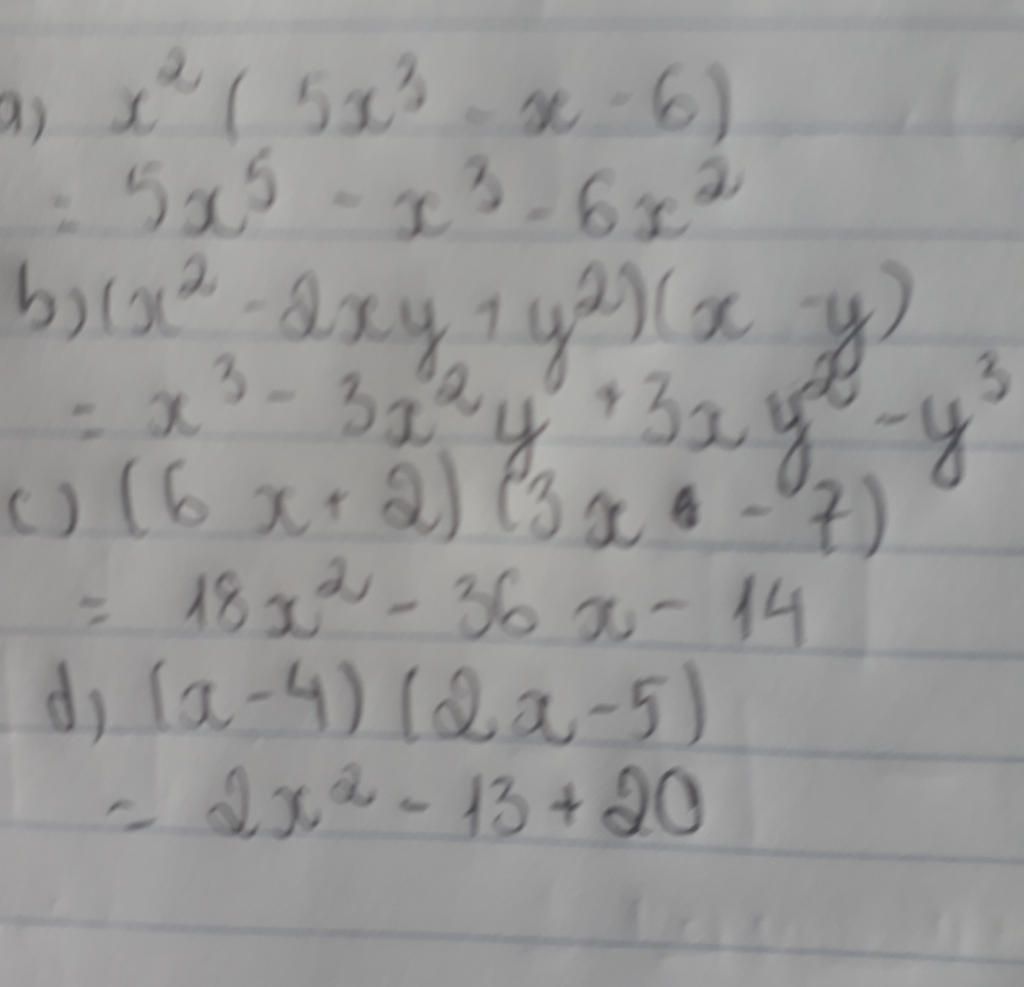 a) x² ( 5x³ - x - 6)
= 5x⁵ - x³ - 6x²
b) (x² - 2xy + y²)(x - y)
= x³ - 3x²y + 3xy² - y³
c) (6x + 2) (3x - 7)
= 18x² - 36x - 14
d) (x - 4) (2x - 5)
= 2x² - 13 + 20